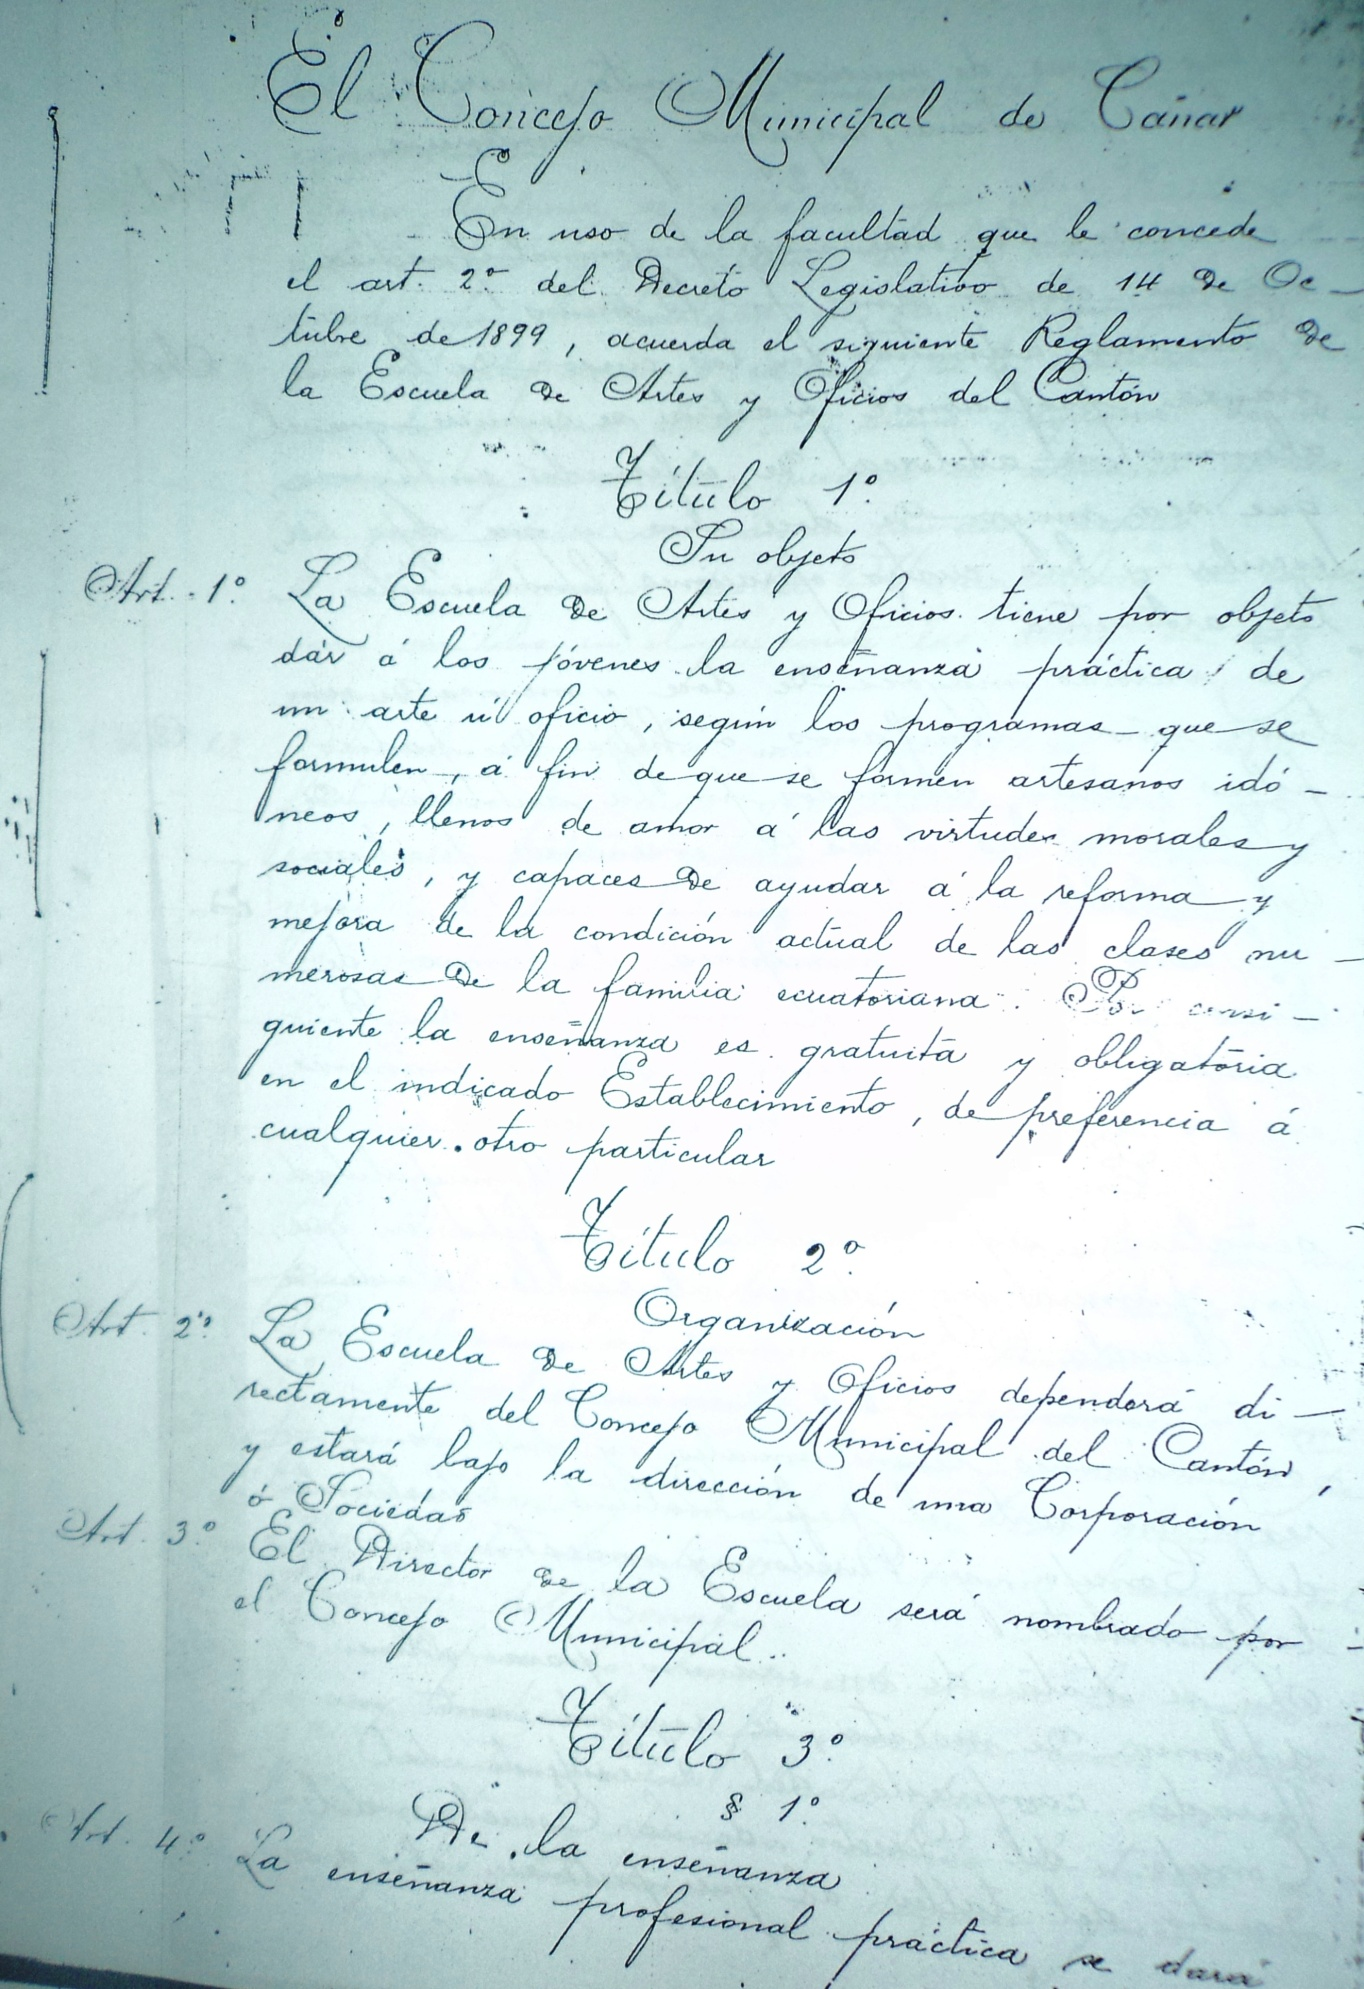 El Concejo Municipal de Cañar
En uso de la facultad que le concede
el art. 2º del Decreto Legislativo de 14 de Oc-
tubre de 1899, acuerda el siguiente Reglamento de
la Escuela de Artes y Oficios del Cantón
Título 1º
Su objeto
Art. 1º. La Escuela de Artes y Oficios tiene por objeto
dár á los jóvenes la enseñanza práctica de
un arte ú oficio, según los programas que se
formulen, á fin de que se formen artesanos idó-
neos, llenos de amor á las virtudes morales y
sociales, y capaces de ayudar á la reforma y
mejora de la condición actual de las clases nu-
merosas de la familia ecuatoriana. Por consi-
guiente la enseñanza es gratuita y obligatoria
en el indicado Establecimiento, de preferencia á
cualquier otro particular
Título 2º
Organización
Art. 2º. La Escuela de Artes y Oficios dependerá di-
rectamente del Concejo Municipal del Cantón,
y estará bajo la dirección de una Corporación
ó Sociedad
Art. 3º El Director de la Escuela será nombrado por
el Concejo Municipal.
Título 3º
§ 1º
De la enseñanza
Art. 4º La enseñanza profesional práctica se dará